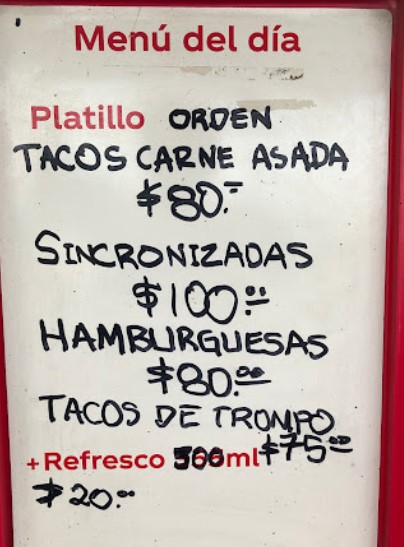 Menú del día
Platillo ORDEN
TACOS CARNE ASADA
$80.-
SINCRONIZADAS
$100.00
HAMBURGUESAS
$80.00
TACOS DE TROMPO
$75.00
+Refresco ml
$20.00